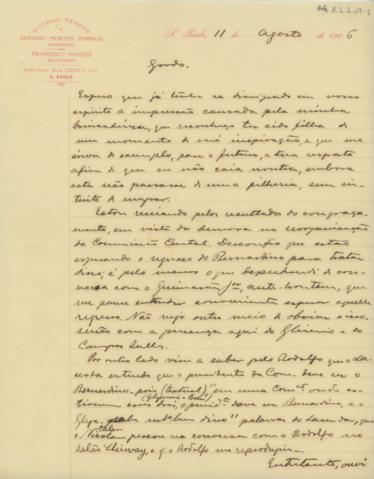 OCTAVIO MENDES
ARTHUR MORAES BARROS
ADVOGADOS
FRANCISCO MENDES
SOLICITADOR
S. PAULO
S. Paulo, 11 de Agosto de 1906
Gordo.
Espero que já tenha se dissipado em vosso
espirito a impressão causada pela minha
brincadeira, que reconheço ter sido filha de
um momento de má inspiração, e que me
sirva de exemplo, para o futuro, a tera resposta
afim de que eu não caia noutra, embora
esta não passasse de uma pilheria, sem in-
tuito de magoar.
Estou receiando pelos resultados do congraça-
mento, em vista da demora na reorganisação
da Commissão Central. Desconfio que estão
esperando o regresso do Bernardino para tratar
disso; é pelo menos o que deprehendi de con-
versa com o Guimarães Jr, ante-hontem, que
me parece entender conveniente esperar aquelle
regresso. Não vejo outro meio de obviar a isso,
senão com a presença aqui do Glicerio e do
Campos Salles.
Por outro lado vim a saber pelo Rodolfo que o La-
cerda entende que o presidente da Com. deve ser o
Bernardino, pois (textual) "em uma Com. onde es-
(Glycerio e Bern.)
tiverem esses dois, o presid. deve ser Bernardino, e o
Glyc. sabe muito bem disso" palavras do Lacerda, que
o Nicolau presenciou na conversa com o Rodolfo no
salão Steinway, e q. o Rodolfo me reproduziu.
Entretanto, ouvi